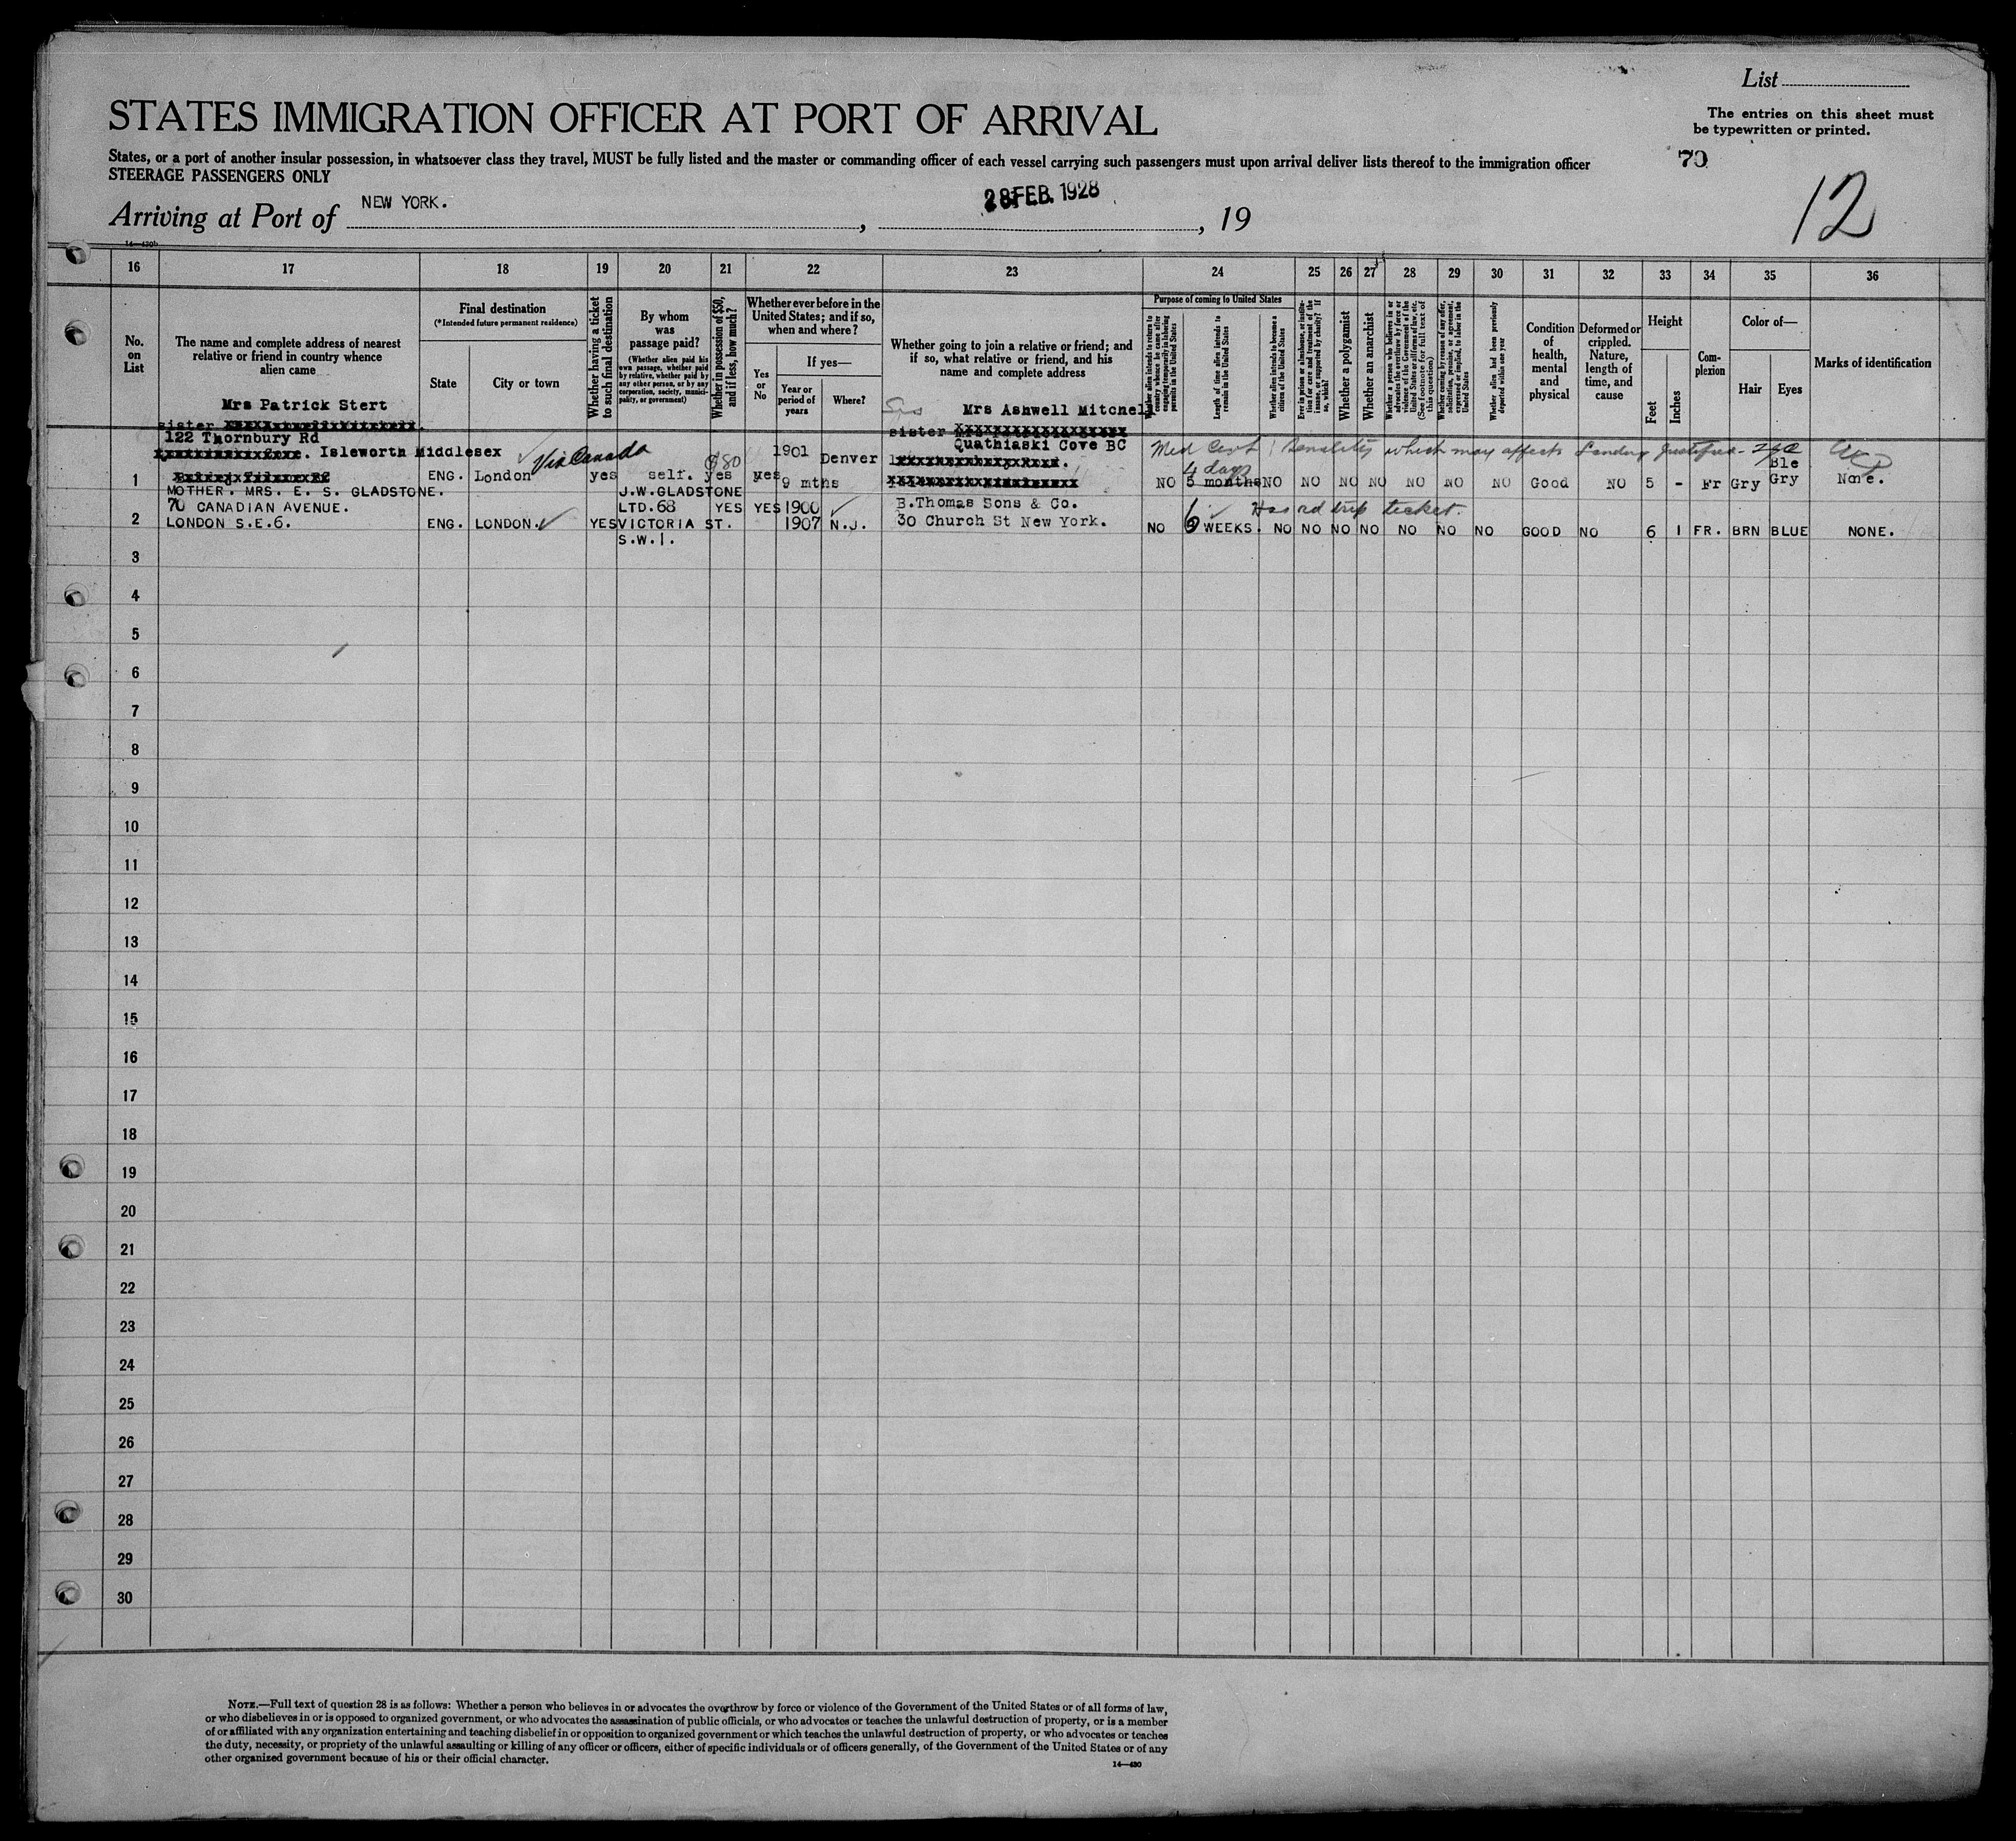 List
STATES IMMIGRATION OFFICER AT PORT OF ARRIVAL
The entries on this sheet must
be typewritten or printed.
States, or a port of another insular possession, in whatsoever class they travel, MUST be fully listed and the master or commanding officer of each vessel carrying such passengers must upon arrival deliver lists thereof to the immigration officer
STEERAGE PASSENGERS ONLY
70
12
Arriving at Port of NEW YORK. , 28 FEB. 1928 , 19
14—430b
16 17 18 19 20 21 22 23 24 25 26 27 28 29 30 31 32 33 34 35 36
No.
on
List
The name and complete address of nearest
relative or friend in country whence
alien came
Final destination
(*Intended future permanent residence)
State
City or town
Whether having a ticket
to such final destination
By whom
was
passage paid?
(Whether alien paid his
own passage, whether paid
by relative, whether paid by
any other person, or by any
corporation, society, munici-
pality, or government)
Whether in possession of $50,
and if less, how much?
Whether ever before in the
United States; and if so,
when and where?
Yes
or
No
If yes—
Year or
period of
years
Where?
Whether going to join a relative or friend; and
if so, what relative or friend, and his
name and complete address
Purpose of coming to United States
Whether alien intends to return to
country whence he came after
engaging temporarily in laboring
pursuits in the United States
Length of time alien intends to
remain in the United States
Whether alien intends to become a
citizen of the United States
Ever in prison or almshouse, or institu-
tion for care and treatment of the
insane, or supported by charity? If
so, which?
Whether a polygamist
Whether an anarchist
Whether a person who believes in or
advocates the overthrow by force or
violence of the Government of the
United States or all forms of law, etc.
(See footnote for full text of
this question)
Whether coming by reason of any offer,
solicitation, promise, or agreement,
expressed or implied, to labor in the
United States
Whether alien had been previously
deported within one year
Condition
of
health,
mental
and
physical
Deformed or
crippled.
Nature,
length of
time, and
cause
Height
Feet
Inches
Com-
plexion
Color of—
Hair
Eyes
Marks of identification
Mrs Patrick Stert
sister
122 Thornbury Rd
Isleworth Middlesex
1 ENG. London Via Canada yes self. $80 yes yes 1901 9 mths Denver
Sis Mrs Ashwell Mitchell
sister
Quathiaski Cove BC
Med Cert: Senility which may affects Landing Justified
4 days
NO 5 months NO NO NO NO NO NO NO Good NO 5 - Fr Gry Ble Gry None.
MOTHER. MRS. E. S. GLADSTONE.
70 CANADIAN AVENUE.
2 LONDON S.E.6. ENG. LONDON. YES
J.W.GLADSTONE
LTD.68
VICTORIA ST.
S.W.1.
YES YES 1900
1907 N.J.
B.Thomas Sons & Co.
30 Church St New York.
Has rd trip ticket.
NO 6 WEEKS. NO NO NO NO NO NO NO GOOD NO 6 1 FR. BRN BLUE NONE.
3
4
5
6
7
8
9
10
11
12
13
14
15
16
17
18
19
20
21
22
23
24
25
26
27
28
29
30
NOTE.—Full text of question 28 is as follows: Whether a person who believes in or advocates the overthrow by force or violence of the Government of the United States or of all forms of law,
or who disbelieves in or is opposed to organized government, or who advocates the assassination of public officials, or who advocates or teaches the unlawful destruction of property, or is a member
of or affiliated with any organization entertaining and teaching disbelief in or opposition to organized government or which teaches the unlawful destruction of property, or who advocates or teaches
the duty, necessity, or propriety of the unlawful assaulting or killing of any officer or officers, either of specific individuals or of officers generally, of the Government of the United States or of any
other organized government because of his or their official character.
14—430